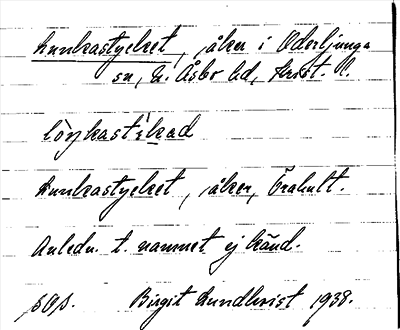 Lunkastycket, åker i Oderljunga
sn, N. Åsbo hd, Krist. l.
Lunkastycket, åker, Trahult.
Anledn. t. namnet ej känd.
Birgit Lundkvist 1938.